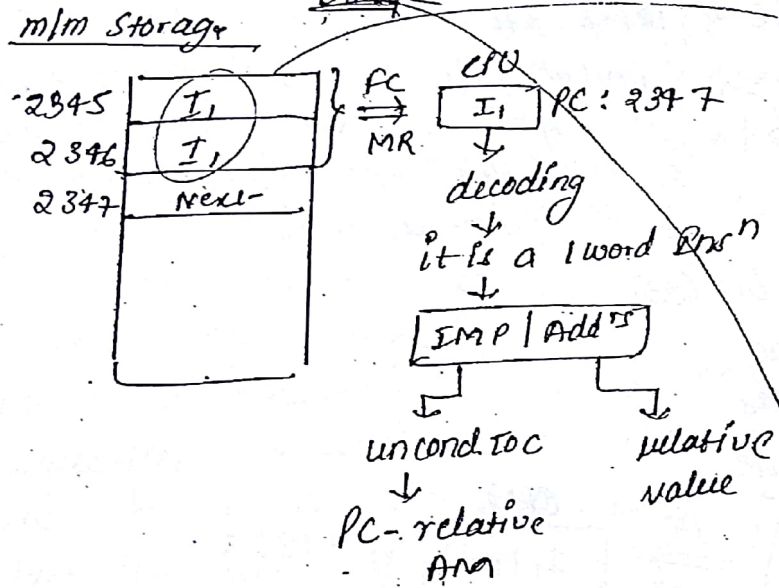 m/m Storage
2345 I₁
2346 I₁
2347 Next
FC
MR
CPU
I₁ PC: 2347
decoding
it is a 1 word Insⁿ
JMP | Addrs
uncond. TOC
relative
value
PC-relative
AM